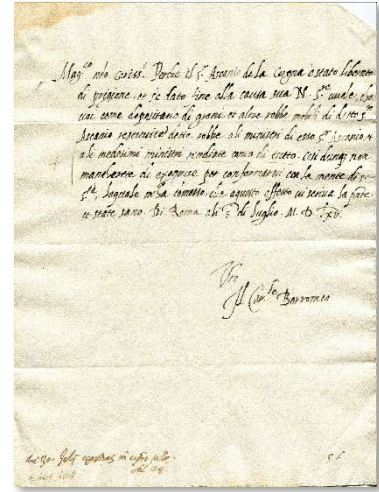 Mag.co nro Cariss.o Perche il S.r Ascanio de la Cugna è stato liberato
di prigione, et s'è dato fine alla causa sua N. S.re vuole, che
voi come depositario di grani, et altre robbe mobili di detto S.r
Ascanio restituiate dette robbe alli ministri di esso S.r Ascanio, et
alli medesimi ministri rendiate conto di tutto. Così dunque non
mancherete di exequire per conformarvi con la mente di
S. S.tà, laquale m'ha comesso che a questo effetto vi scriva la pnte
et state sano. Di Roma alli 3 di luglio. M. D. LXV.
Vro
Il Car.le Borromeo
56